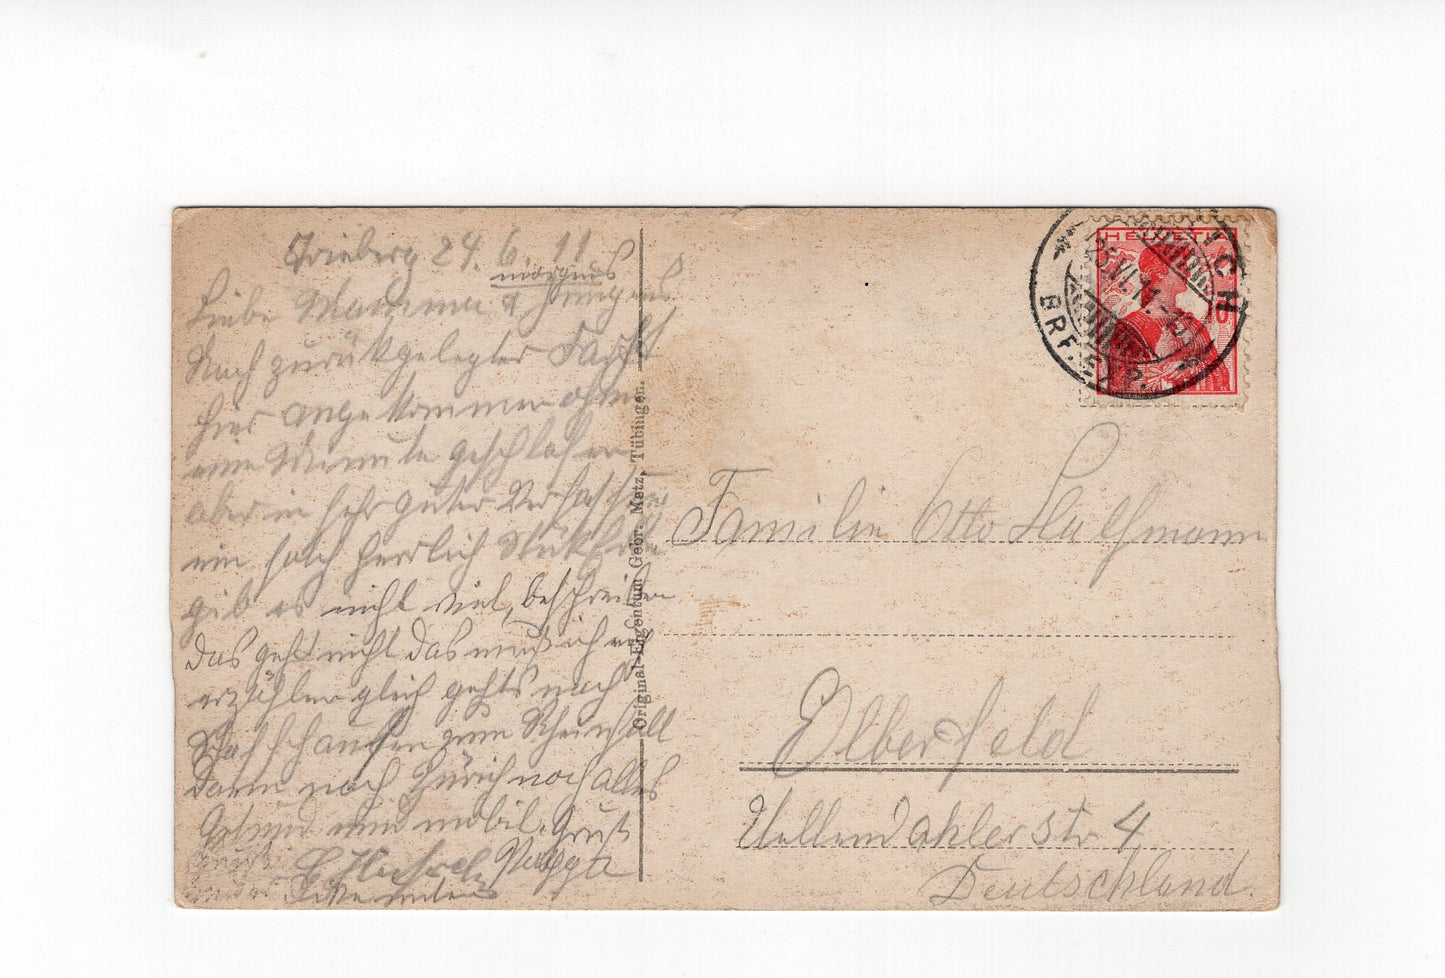 Triberg 24. 6. 11
morgens
Liebe Mamma & Jungens
Nach zurückgelegter Fahrt
hier angekommen ohne
eine Minute geschlafen
aber in sehr guter Verfassung
ein solch herrlich Stück Erde
gib es nicht viel, beschreiben
das geht nicht das muß ich
erzählen gleich gehts nach
Schaffhausen zum Rheinfall
dann nach Zürich noch alles
Gesund und mobil. Gruß
Pappa
Original-Eigentum Gebr. Metz, Tübingen.
HELVETIA
BRF.
Familie Otto
Elberfeld
str 4
Deutschland.